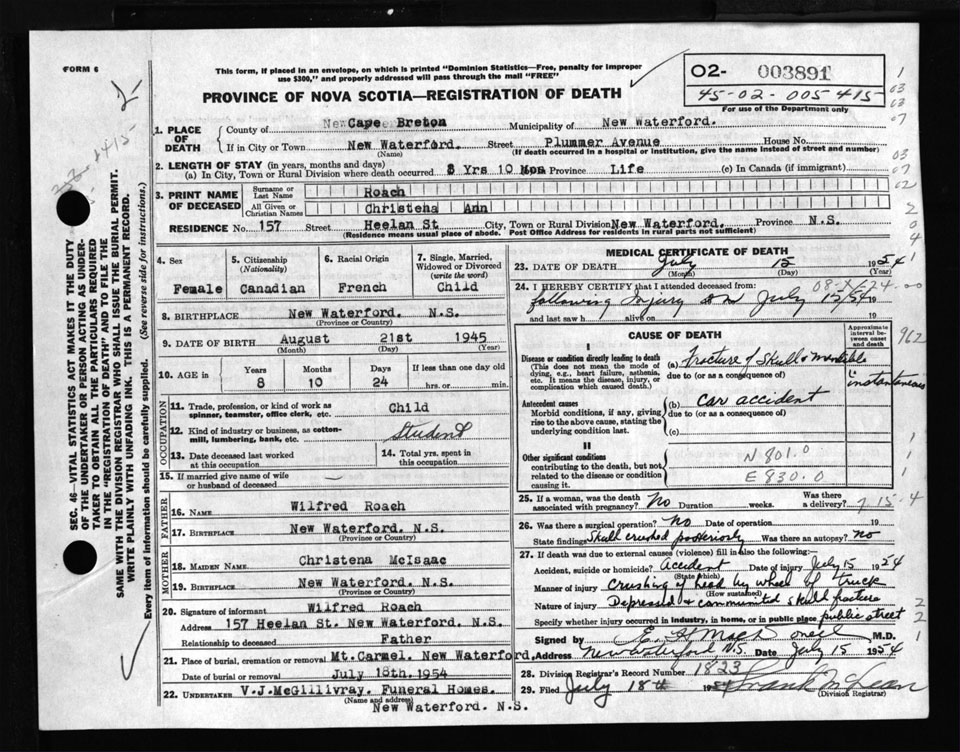 FORM 6
This form, if placed in an envelope, on which is printed "Dominion Statistics—Free, penalty for improper
use $300," and properly addressed will pass through the mail "FREE"
O2- 003891
45-02-005-415
For use of the Department only
PROVINCE OF NOVA SCOTIA—REGISTRATION OF DEATH
1. PLACE OF DEATH
County of Cape Breton Municipality of New Waterford.
If in City or Town New Waterford. Street Plummer Avenue House No.
(Name) (If death occurred in a hospital or institution, give the name instead of street and number)
2. LENGTH OF STAY (in years, months and days)
(a) In City, Town or Rural Division where death occurred 8 Yrs 10 Mos Province Life (c) In Canada (if immigrant)
3. PRINT NAME OF DECEASED
Surname or Last Name Roach
All Given or Christian Names Christena Ann
RESIDENCE No. 157 Street Heelan St City, Town or Rural Division New Waterford. Province N.S.
(Residence means usual place of abode. Post Office Address for residents in rural parts not sufficient)
4. Sex
Female
5. Citizenship
(Nationality)
Canadian
6. Racial Origin
French
7. Single, Married,
Widowed or Divorced
(write the word)
Child
8. BIRTHPLACE New Waterford. N.S.
(Province or Country)
9. DATE OF BIRTH August 21st 1945
(Month) (Day) (Year)
10. AGE in Years Months Days If less than one day old
8 10 24 hrs. or min.
OCCUPATION
11. Trade, profession, or kind of work as
spinner, teamster, office clerk, etc. Child
12. Kind of industry or business, as cotton-
mill, lumbering, bank, etc. Student
13. Date deceased last worked
at this occupation
14. Total yrs. spent in
this occupation
15. If married give name of wife
or husband of deceased
FATHER
16. NAME Wilfred Roach
17. BIRTHPLACE New Waterford. N.S.
(Province or Country)
MOTHER
18. MAIDEN NAME Christena McIsaac
19. BIRTHPLACE New Waterford. N.S.
(Province or Country)
20. Signature of informant Wilfred Roach
Address 157 Heelan St. New Waterford. N.S.
Relationship to deceased Father
21. Place of burial, cremation or removal Mt. Carmel. New Waterford.
Date of burial or removal July 18th. 1954
22. UNDERTAKER V.J.McGillivray. Funeral Homes.
(Name and address)
New Waterford. N.S.
MEDICAL CERTIFICATE OF DEATH
23. DATE OF DEATH July 15 1954
(Month) (Day) (Year)
24. I HEREBY CERTIFY that I attended deceased from:
following Injury on July 15/54 19
and last saw h alive on 19
CAUSE OF DEATH
Approximate
interval between
onset
and death
Disease or condition directly leading to death
(This does not mean the mode of
dying, e.g., heart failure, asthenia,
etc. It means the disease, injury, or
complication which caused death.)
(a) Fracture of Skull & Mandible
due to (or as a consequence of)
instantaneous
Antecedent causes
Morbid conditions, if any, giving
rise to the above cause, stating the
underlying condition last.
(b) car accident
due to (or as a consequence of)
(c)
II
Other significant conditions
contributing to the death, but not
related to the disease or condition
causing it.
N 801.0
E 830.0
25. If a woman, was the death
associated with pregnancy? No Duration weeks. Was there
a delivery?
7 15-4
26. Was there surgical operation? No Date of operation 19
State findings Skull crushed posteriorly Was there an autopsy? No
27. If death was due to external causes (violence) fill in also the following:
Accident, suicide or homicide? Accident Date of injury July 15 1954
(State which)
Manner of injury Crushing of head by wheel of truck
(How sustained)
Nature of injury Depressed & comminuted skull fracture
Specify whether injury occurred in industry, in home, or in public place public street
Signed by M.D.
Address New Waterford, N.S. Date July 15 1954
28. Division Registrar's Record Number 1823
29. Filed July 18th 1954 Frank McLean
(Division Registrar)
962
SEC. 46—VITAL STATISTICS ACT MAKES IT THE DUTY
OF THE UNDERTAKER OR PERSON ACTING AS UNDER-
TAKER TO OBTAIN ALL THE PARTICULARS REQUIRED
IN THE "REGISTRATION OF DEATH" AND TO FILE THE
SAME WITH THE DIVISION REGISTRAR WHO SHALL ISSUE THE BURIAL PERMIT.
WRITE PLAINLY WITH UNFADING INK. THIS IS A PERMANENT RECORD.
Every item of information should be carefully supplied. (See reverse side for instructions.)